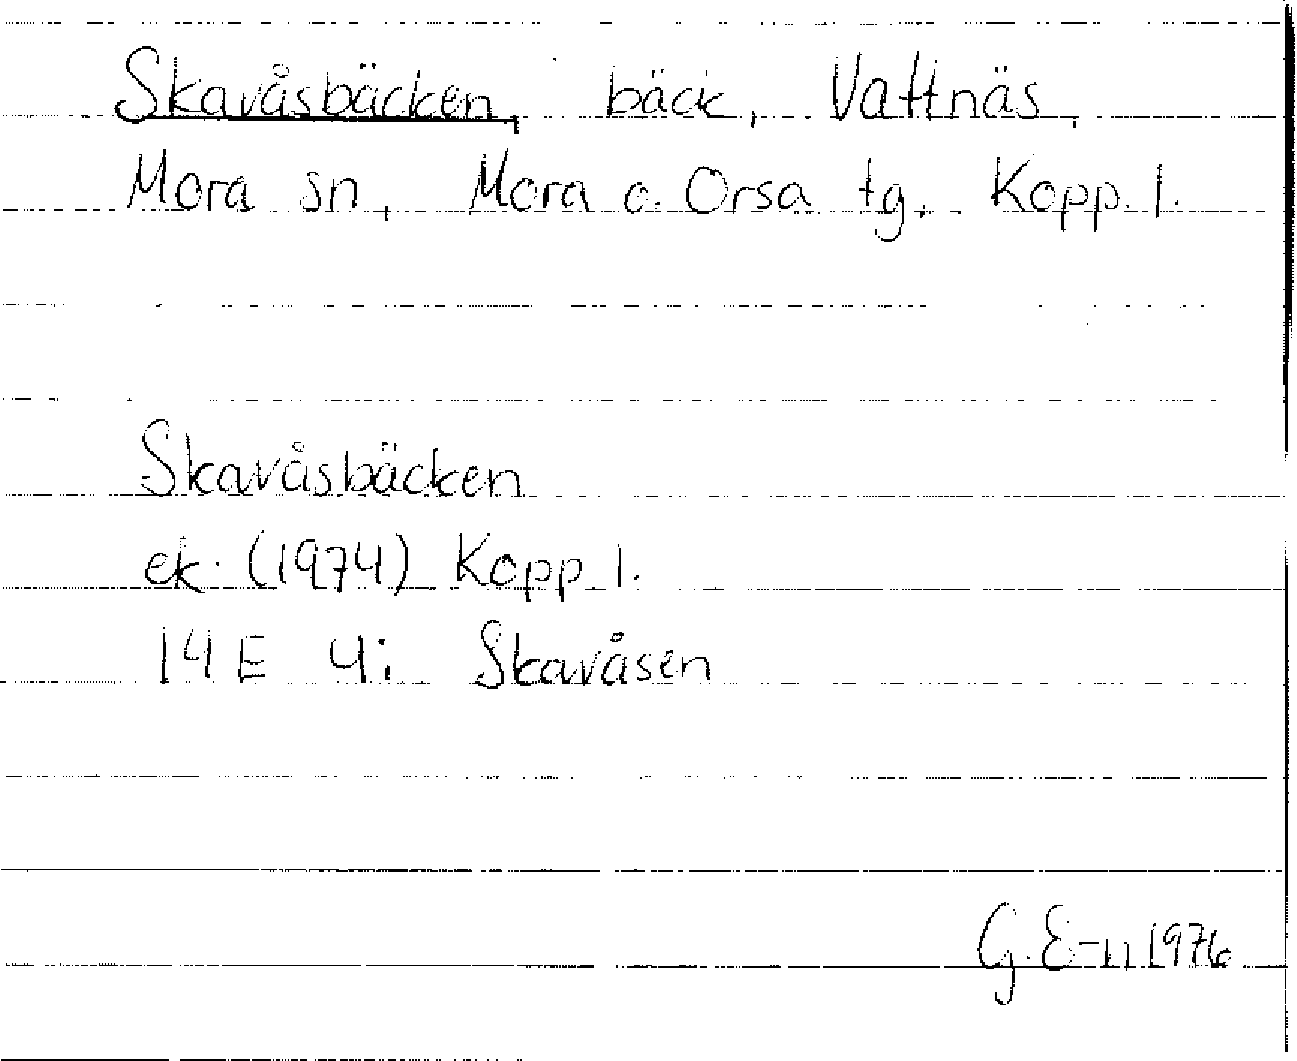 Skavåsbäcken, bäck, Vattnäs,
Mora sn, Mora o. Orsa tg. Kopp. l.
Skavåsbäcken
ek. (1974) Kopp. l.
14 E 4i Skavåsen
G. E-n 1976